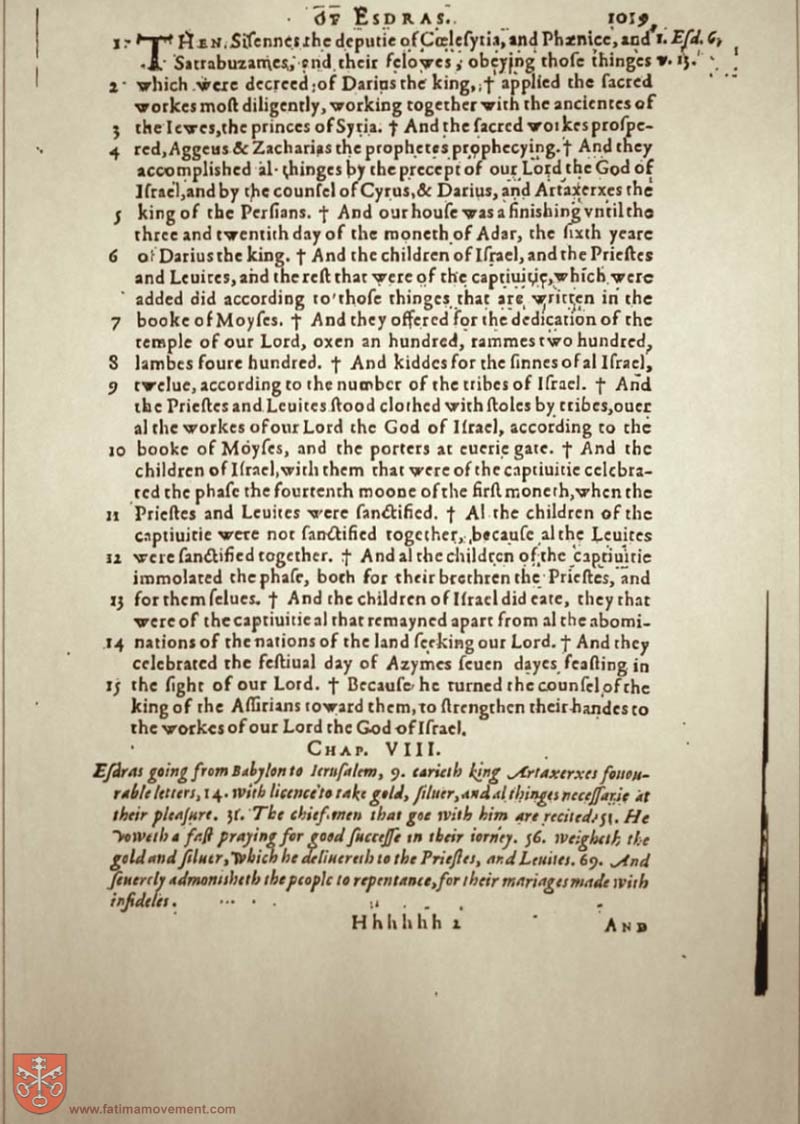 OF ESDRAS. 1019
1. THEN Sisennes the deputie of Cœlesytia, and Phænice, and 1. Esd. 6,
Satrabuzames, and their felowes, obeying those thinges v. 13.
2 which were decreed of Darius the king, † applied the sacred
workes most diligently, working together with the ancientes of
3 the Iewes, the princes of Syria. † And the sacred workes prospe-
4 red, Aggeus & Zacharias the prophetes prophecying. † And they
accomplished al thinges by the precept of our Lord the God of
Israel, and by the counsel of Cyrus, & Darius, and Artaxerxes the
5 king of the Persians. † And our house was a finishing vntil the
three and twentith day of the moneth of Adar, the sixth yeare
6 of Darius the king. † And the children of Israel, and the Priestes
and Leuites, and the rest that were of the captiuitie, which were
added did according to those thinges that are written in the
7 booke of Moyses. † And they offered for the dedication of the
temple of our Lord, oxen an hundred, rammes two hundred,
8 lambes foure hundred. † And kiddes for the sinnes of al Israel,
9 twelue, according to the number of the tribes of Israel. † And
the Priestes and Leuites stood clothed with stoles by tribes, ouer
al the workes of our Lord the God of Israel, according to the
10 booke of Moyses, and the porters at euerie gate. † And the
children of Israel, with them that were of the captiuitie celebra-
ted the phase the fourtenth moone of the first moneth, when the
11 Priestes and Leuites were sanctified. † Al the children of the
captiuitie were not sanctified together, because al the Leuites
12 were sanctified together. † And al the children of the captiuitie
immolated the phase, both for their brethren the Priestes, and
13 for them selues. † And the children of Israel did eate, they that
were of the captiuitie al that remayned apart from al the abomi-
14 nations of the nations of the land seeking our Lord. † And they
celebrated the festiual day of Azymes seuen dayes feasting in
15 the sight of our Lord. † Because he turned the counsel of the
king of the Assirians toward them, to strengthen their handes to
the workes of our Lord the God of Israel.
CHAP. VIII.
Esdras going from Babylon to Jerusalem, 9. carieth king Artaxerxes fouou-
rable letters, 14. with licence to take gold, siluer, and al thinges necessarie at
their pleasure. 31. The chief men that goe with him are recited. 51. He
voweth a fast praying for good successe in their iorney. 56. weigheth the
gold and siluer, which he deliuereth to the Priestes, and Leuites. 69. And
seuerely admonisheth the people to repentance, for their mariages made with
infideles.
Hhhhhh 2 AND
www.fatimamovement.com